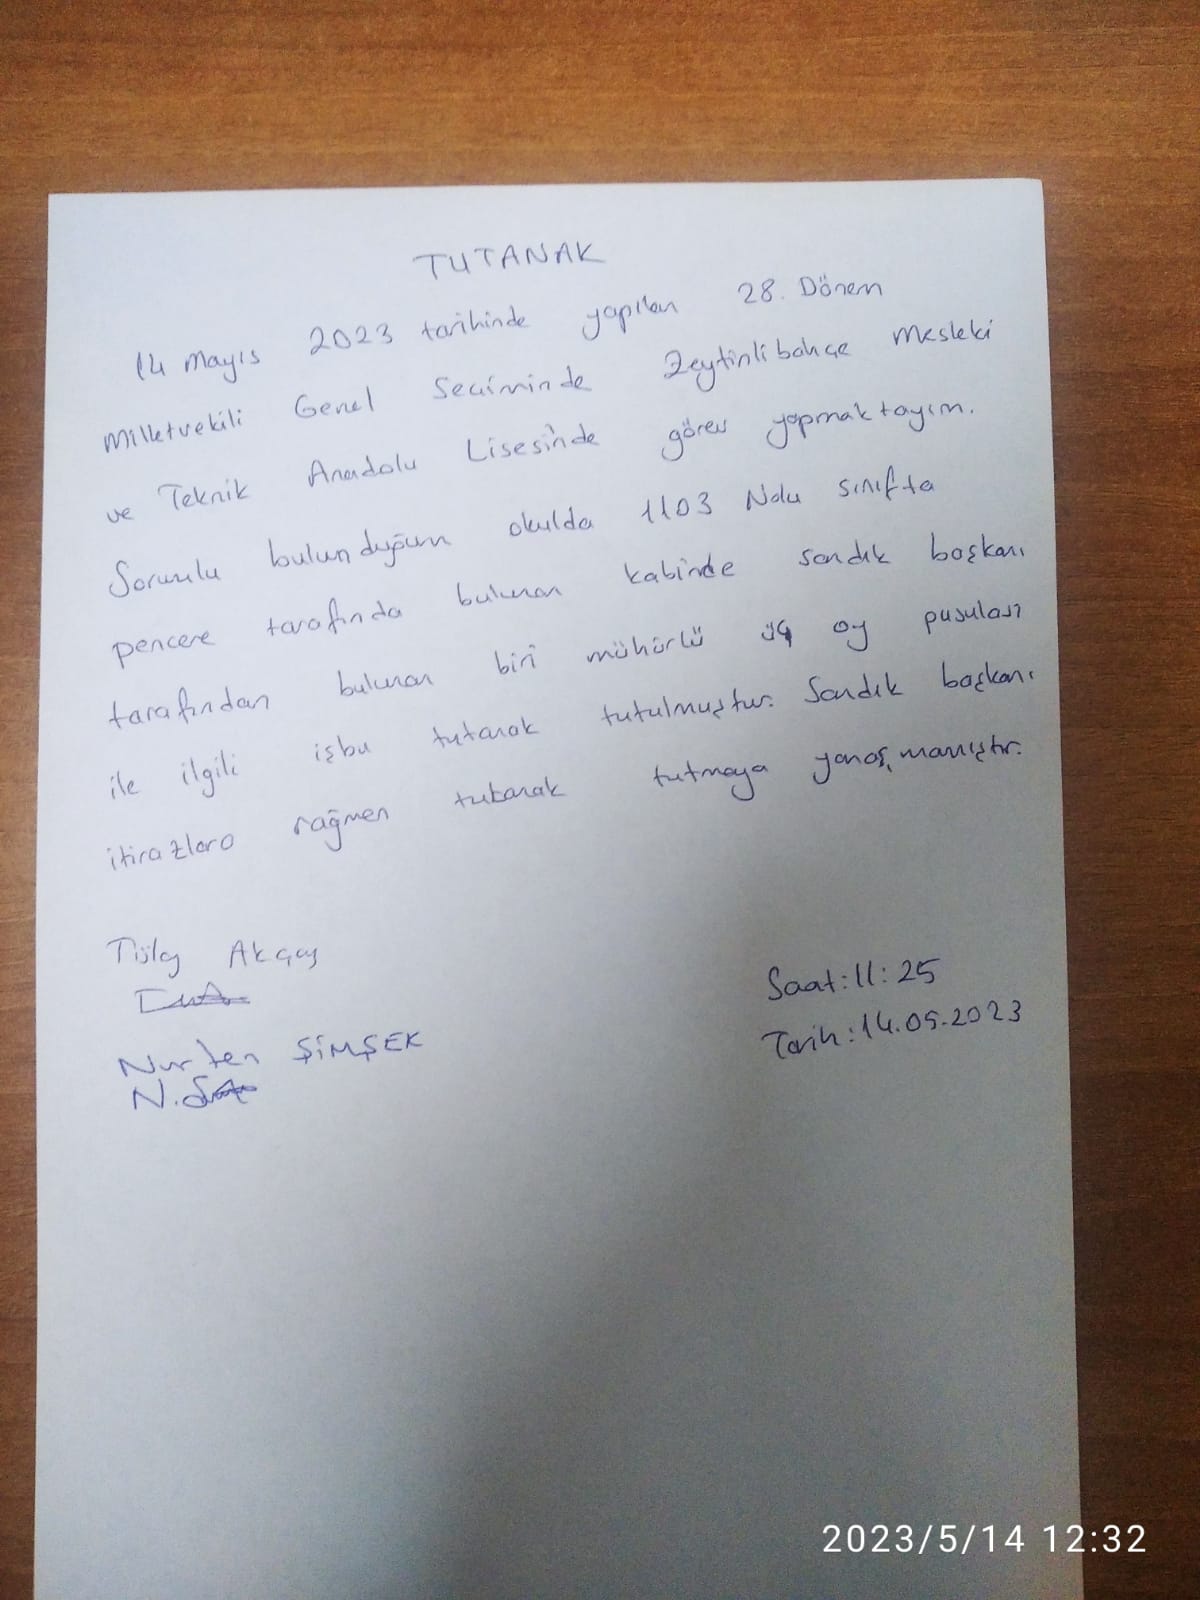 TUTANAK
14 Mayıs 2023 tarihinde yapılan 28. Dönem
Milletvekili Genel Seçiminde Zeytinlibahçe Mesleki
ve Teknik Anadolu Lisesinde görev yapmaktayım.
Sorumlu bulunduğum okulda 1103 Nolu sınıfta
pencere tarafında bulunan kabinde sandık başkanı
tarafından bulunan biri mühürlü üç oy pusulası
ile ilgili işbu tutanak tutulmuştur. Sandık başkanı
itirazlara rağmen tutanak tutmaya yanaşmamıştır.
Tülay Akçay
Saat: 11:25
Tarih: 14.05.2023
Nurten ŞİMŞEK
2023/5/14 12:32